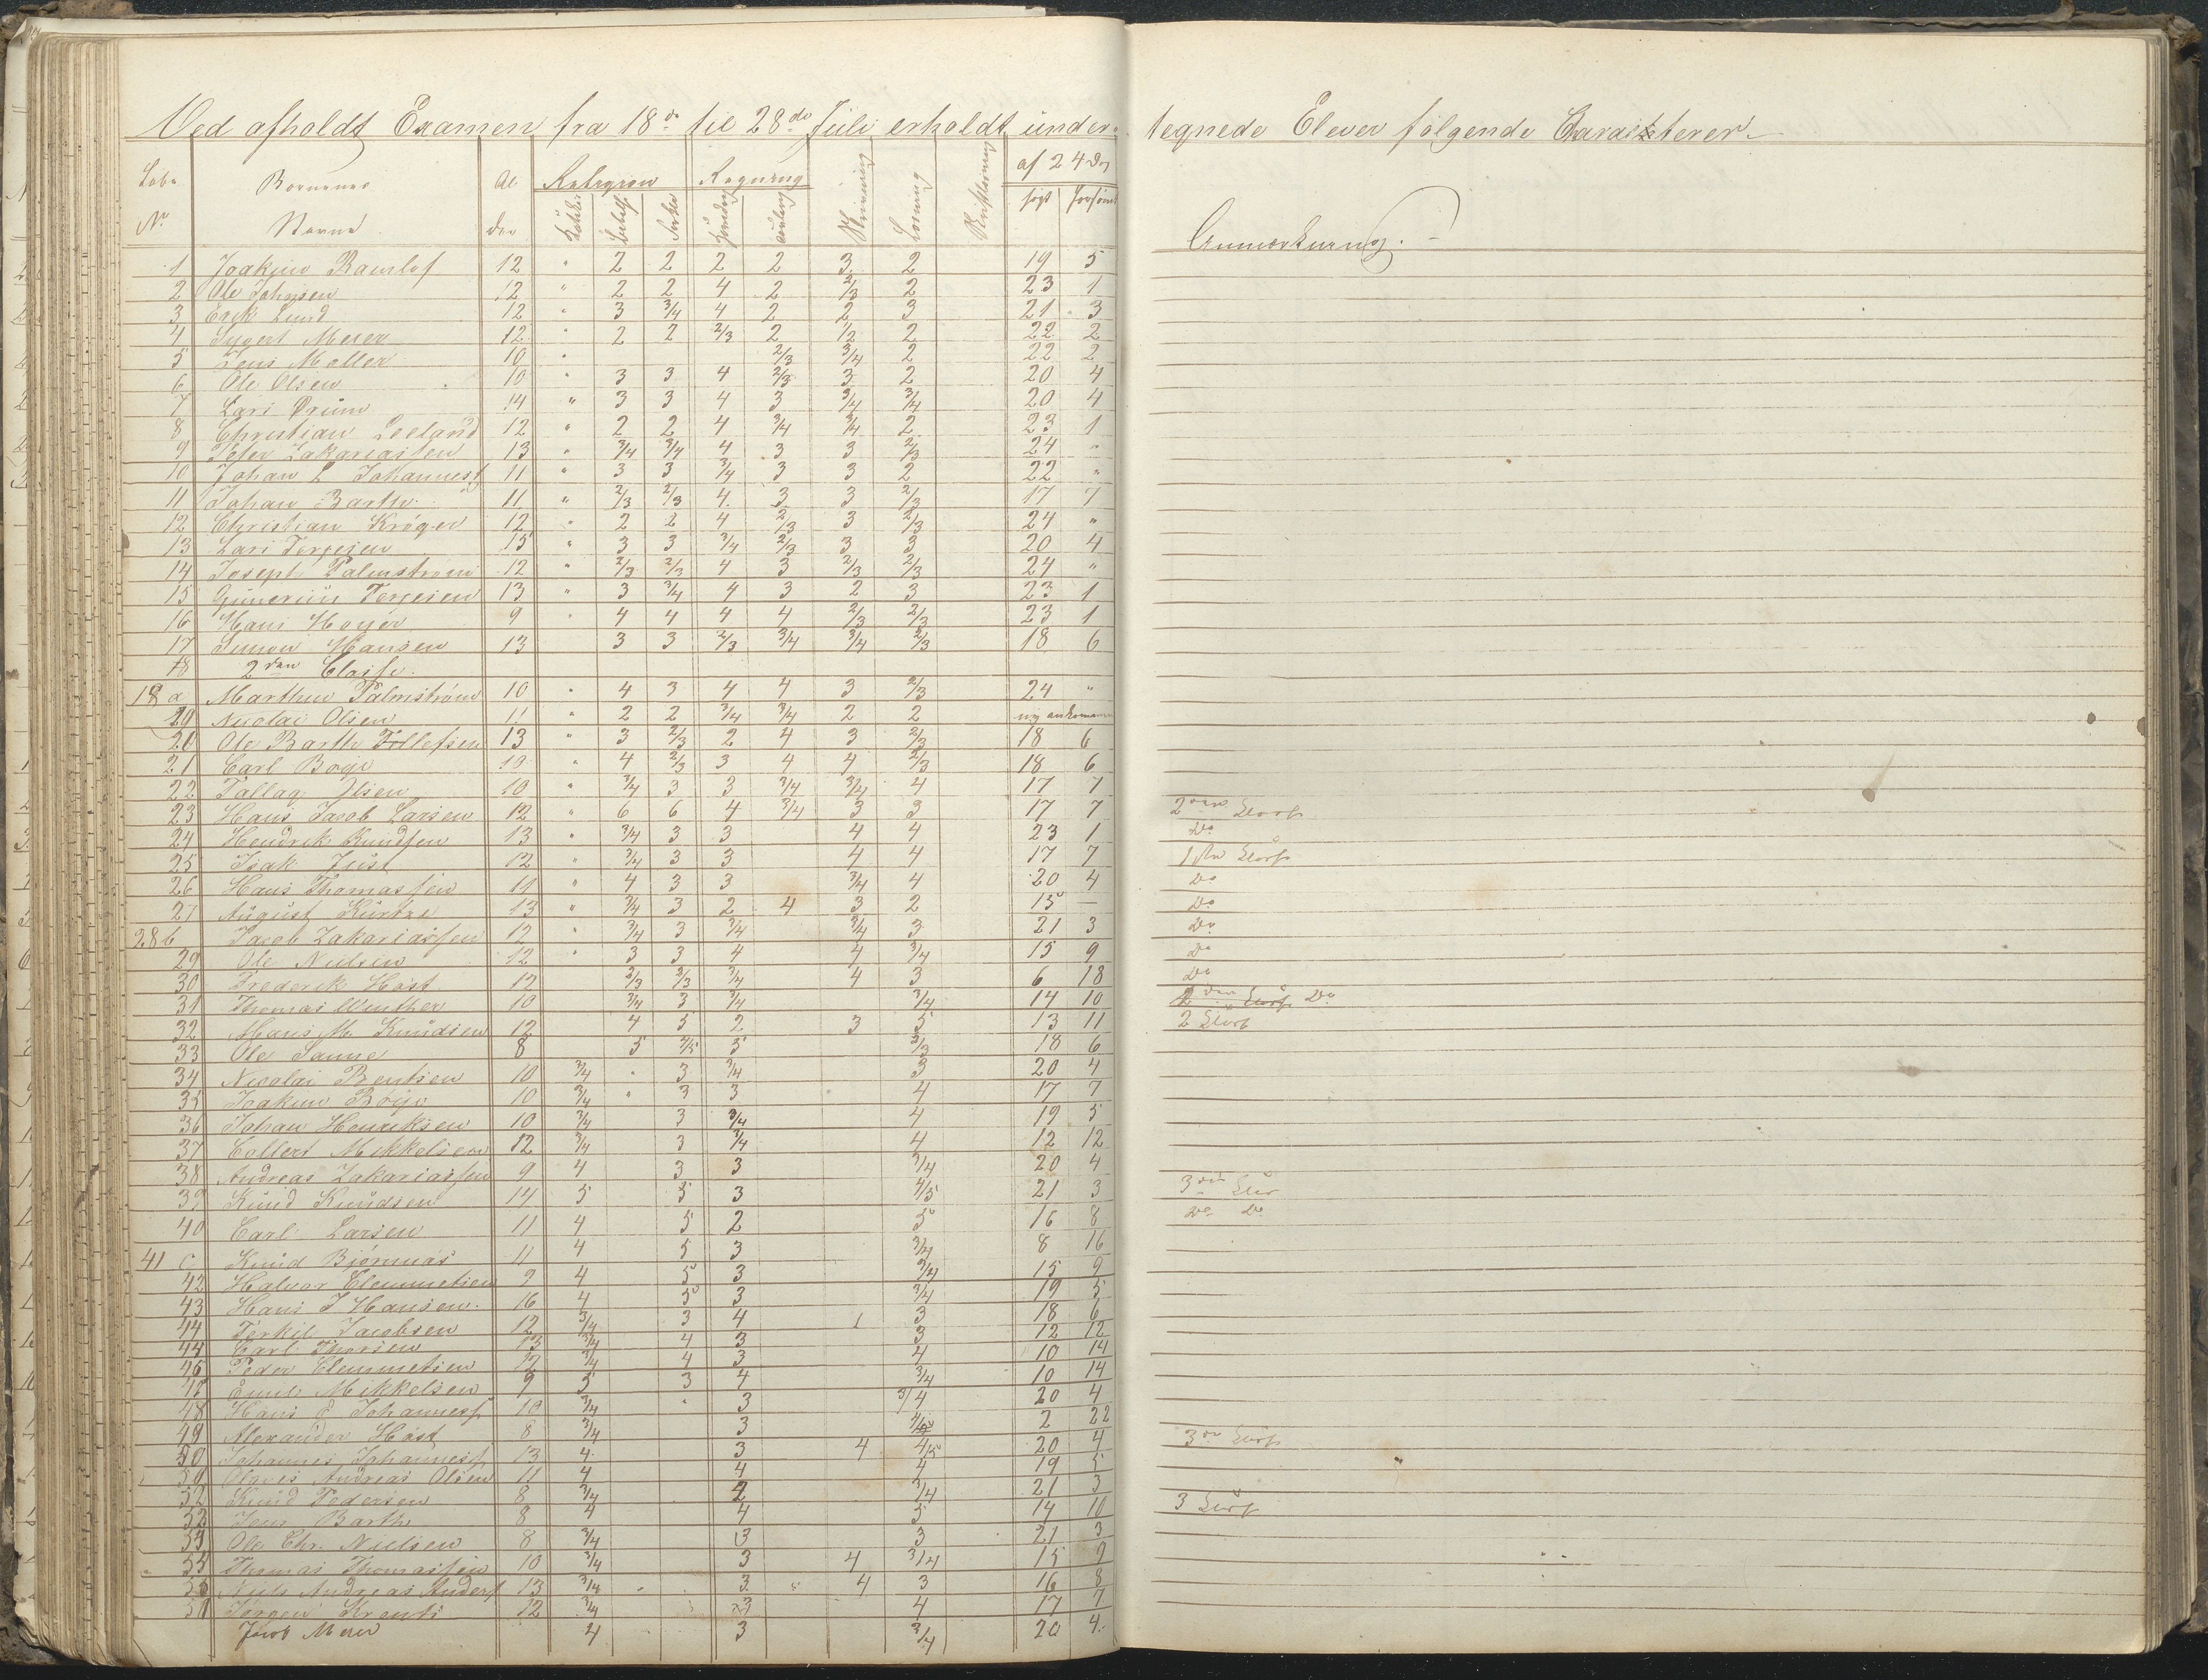 Ved afholdt Examen fra 18de til 28de Juli erholdt under-tegnede Elever følgende Caracterer
Løbe Børnenes Al Religion Regning af 24 Dg
No. Navne der søgt forsømt
Anmærkning.
1 Joakim Ramlof 12 " 2 2 2 2 3 2 19 5
2 Ole Johnsen 12 " 2 2 4 2 2/3 2 23 1
3 Erik Lund 12 " 3 3/4 4 2 2 3 21 3
4 Sivert Meier 12 " 2 2 2/3 2 1/2 2 22 2
5 Jens Møller 10 " 2/3 3/4 2 22 2
6 Ole Olsen 10 " 3 3 4 2/3 3 2 20 4
7 Lars 14 " 3 3 4 3 3/4 3/4 20 4
8 Christian Leeland 12 " 2 2 4 3/4 3/4 2 23 1
9 Peter Zakariasen 13 " 3/4 3/4 4 3 3 2/3 24 "
10 Johan L Johannesf 11 " 3 3 3/4 3 3 2 22 "
11 Johan Barth 11 " 2/3 2/3 4 3 3 2/3 17 7
12 Christian Krøger 12 " 2 2 4 2/3 3 2/3 24 "
13 Lars Terjesen 15 " 3 3 3/4 2/3 3 3 20 4
14 Joseph Palmstrøm 12 " 2/3 2/3 4 3 2/3 2/3 24 "
15 Terjesen 13 " 3 3/4 4 3 2 3 23 1
16 Hans Høyer 9 " 4 4 4 4 2/3 2/3 23 1
17 Simon Hansen 13 3 3 2/3 3/4 3/4 2/3 18 6
18 2den Classe.
18 a Marthin Palmstrøm 10 " 4 3 4 4 3 2/3 24 "
19 Nicolai Olsen 11 " 2 2 3/4 3/4 2 2 ny ankommen
20 Ole Barth Tellefsen 13 " 3 2/3 2 4 3 2/3 18 6
21 Carl Boye 10 " 4 2/3 3 4 4 2/3 18 6
22 Tallag Olsen 10 " 3/4 3 3 3/4 3/4 4 17 7
23 Hans Jacob Larsen 12 " 6 6 4 3/4 3 3 17 7 2den
24 Hendrik Knudsen 13 " 3/4 3 3 4 4 23 1 Do
25 Isak Just 12 " 3/4 3 3 4 4 17 7 1ste
26 Hans Thomassen 11 " 4 3 3 3/4 4 20 4 Do
27 August Kurtze 13 " 3/4 3 2 4 3 2 15 — Do
28 b Jacob Zakariassen 12 " 3/4 3 3/4 3/4 3 21 3 Do
29 Ole Nielsen 12 " 3 3 4 4 3/4 15 9 Do
30 Frederik Høst 12 2/3 2/3 3/4 4 3 6 18 Do
31 Thomas Winther 10 3/4 3 3/4 3/4 14 10 2den Do
32 Hans M Knudsen 12 4 5 2 3 5 13 11 2
33 Ole Sanne 8 5 4/5 5 2/3 18 6
34 Nicolai Bentsen 10 3/4 " 3 3/4 3 20 4
35 Joakim Boye 10 3/4 " 3 3 4 17 7
36 Johan Henriksen 10 3/4 3 3/4 4 19 5
37 Collert Mikkelsen 12 3/4 3 3/4 4 12 12
38 Andreas Zakariassen 9 4 3 3 3/4 20 4
39 Knud Knudsen 14 5 5 3 4/5 21 3 3die
40 Carl Larsen 11 4 5 2 5 16 8 Do Do
41 c Knud Bjørnnas 11 4 5 3 3/4 8 16
42 Halvor Clemmetsen 9 4 5 3 3/4 15 9
43 Hans J Hansen 16 4 5 3 3/4 19 5
44 Terkil Jacobsen 12 3/4 3 4 1 3 18 6
44 Carl Thorsen 13 3/4 4 3 3 12 12
46 Peder Clemmetsen 12 3/4 4 3 4 10 14
47 Emil Mikkelsen 9 5 3 4 3/4 10 14
48 Hans Johannesf 10 3/4 " 3 3/4 20 4
49 Alexander Høst 8 3/4 3 2 22
50 Johannes Johannesf 13 4 3 4 4/5 20 4 3die
50 Andreas Olsen 11 4 4 4 19 5
52 Knud Pedersen 8 3/4 2 3/4 21 3
53 Jens Barth 8 4 4 5 14 10 3
54 Ole Chr. Nielsen 8 3/4 3 3 21 3
55 Thomas Thomassen 10 3/4 3 4 3/4 15 9
56 Niels Andreas Andersf 13 3/4 3 4 3 16 8
Jørgen 12 3/4 3 4 17 7
Jacob Meier 4 3 3/4 20 4